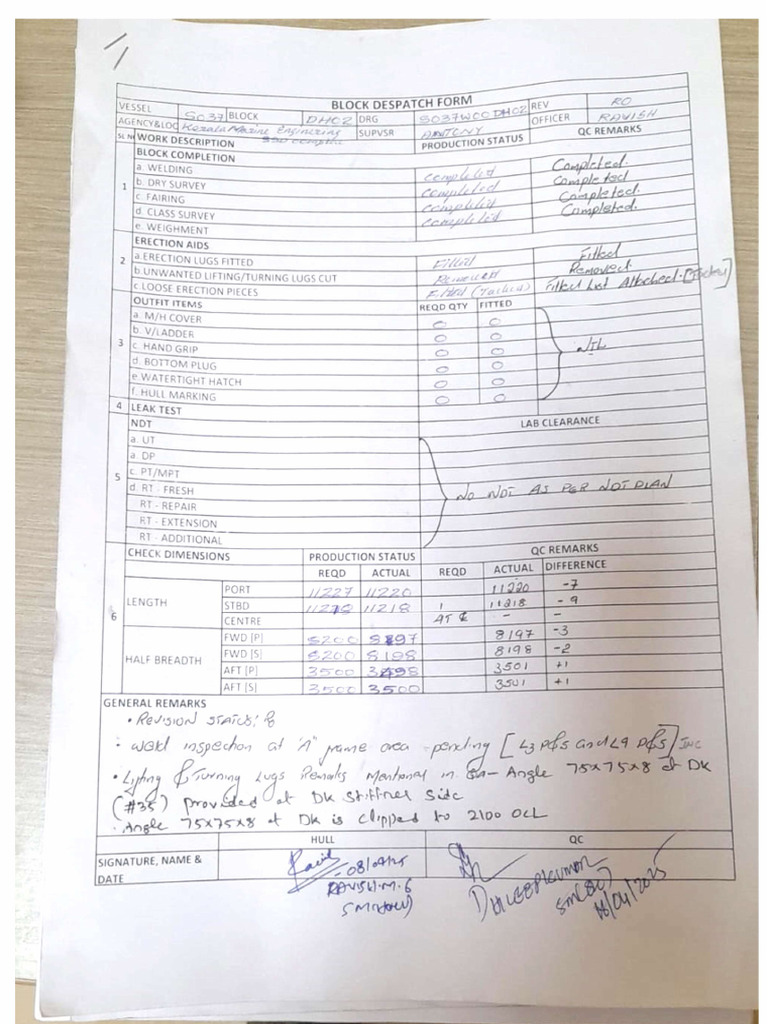 BLOCK DESPATCH FORM
VESSEL S037 BLOCK DH02 DRG S037W00DH02 REV R0
AGENCY&LOC Kerala Marine Engineering SUPVSR ANTONY OFFICER RAVISH
SL N WORK DESCRIPTION PRODUCTION STATUS QC REMARKS
BLOCK COMPLETION
1
a. WELDING completed Completed.
b. DRY SURVEY completed Completed
c. FAIRING completed Completed.
d. CLASS SURVEY completed Completed.
e. WEIGHMENT
ERECTION AIDS
2
a.ERECTION LUGS FITTED Fitted Fitted
b.UNWANTED LIFTING/TURNING LUGS CUT Removed Removed.
c.LOOSE ERECTION PIECES Fitted (Tacked) Fitted List Attached.
OUTFIT ITEMS REQD QTY FITTED
3
a. M/H COVER 0 0
b. V/LADDER 0 0
c. HAND GRIP 0 0 NIL
d. BOTTOM PLUG 0 0
e.WATERTIGHT HATCH 0 0
f. HULL MARKING 0 0
4 LEAK TEST
NDT LAB CLEARANCE
5
a. UT
a. DP
c. PT/MPT
d. RT - FRESH NO NDT AS PER NDT PLAN
RT - REPAIR
RT - EXTENSION
RT - ADDITIONAL
6
CHECK DIMENSIONS PRODUCTION STATUS QC REMARKS
REQD ACTUAL REQD ACTUAL DIFFERENCE
LENGTH
PORT 11227 11220 11220 -7
STBD 11218 11218 -9
CENTRE AT ℄ - -
HALF BREADTH
FWD [P] 8200 8197 8197 -3
FWD [S] 8200 8198 8198 -2
AFT [P] 3500 3498 3501 +1
AFT [S] 3500 3500 3501 +1
GENERAL REMARKS
• REVISION STATUS:
• Weld inspection at "A" frame area pending [L3 P&S and L9 P&S]
• Lifting & Turning Lugs Remarks Mentioned in Angle 75x75x8 at DK
(#35) provided at DK Stiffner Side
• Angle 75x75x8 at DK is clipped to 2100 OCL
HULL QC
SIGNATURE, NAME & DATE
08/04/25
RAVISH.M.G
DHILEEPKUMAR